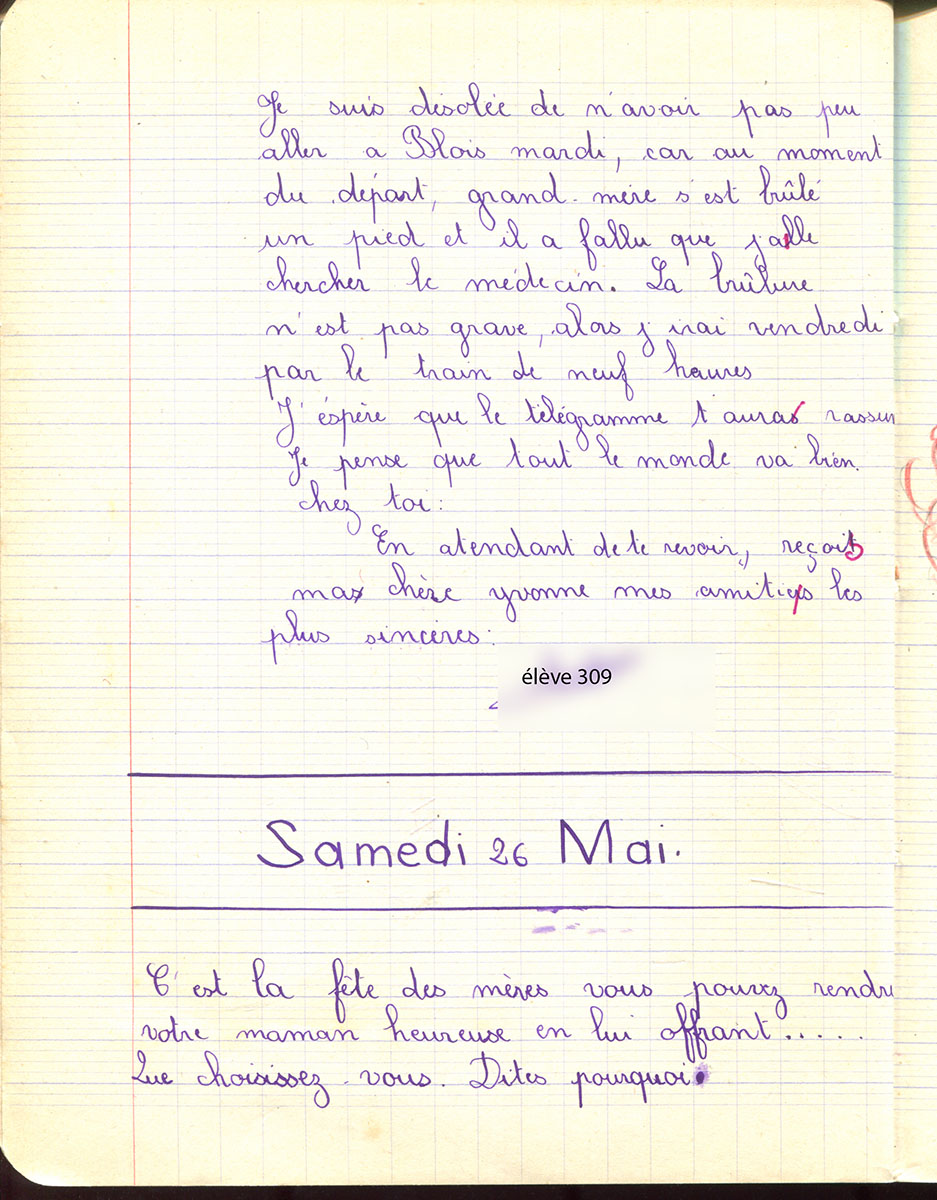 Je suis désolée de n'avoir pas peu
aller a Blois mardi, car au moment
du départ, grand-mère s'est brûlé
un pied et il a fallu que j'aille
chercher le médecin. La brûlure
n'est pas grave, alors j'irai vendredi
par le train de neuf heures
J'éspère que le télégramme t'auras rassur
Je pense que tout le monde va bien.
chez toi:
En atendant de te revoir, reçoit
ma chère yvonne mes amitiés les
plus sincères:
élève 309
Samedi 26 Mai.
C'est la fête des mères vous pouvez rendre
votre maman heureuse en lui offrant.....
Que choisissez-vous. Dites pourquoi.